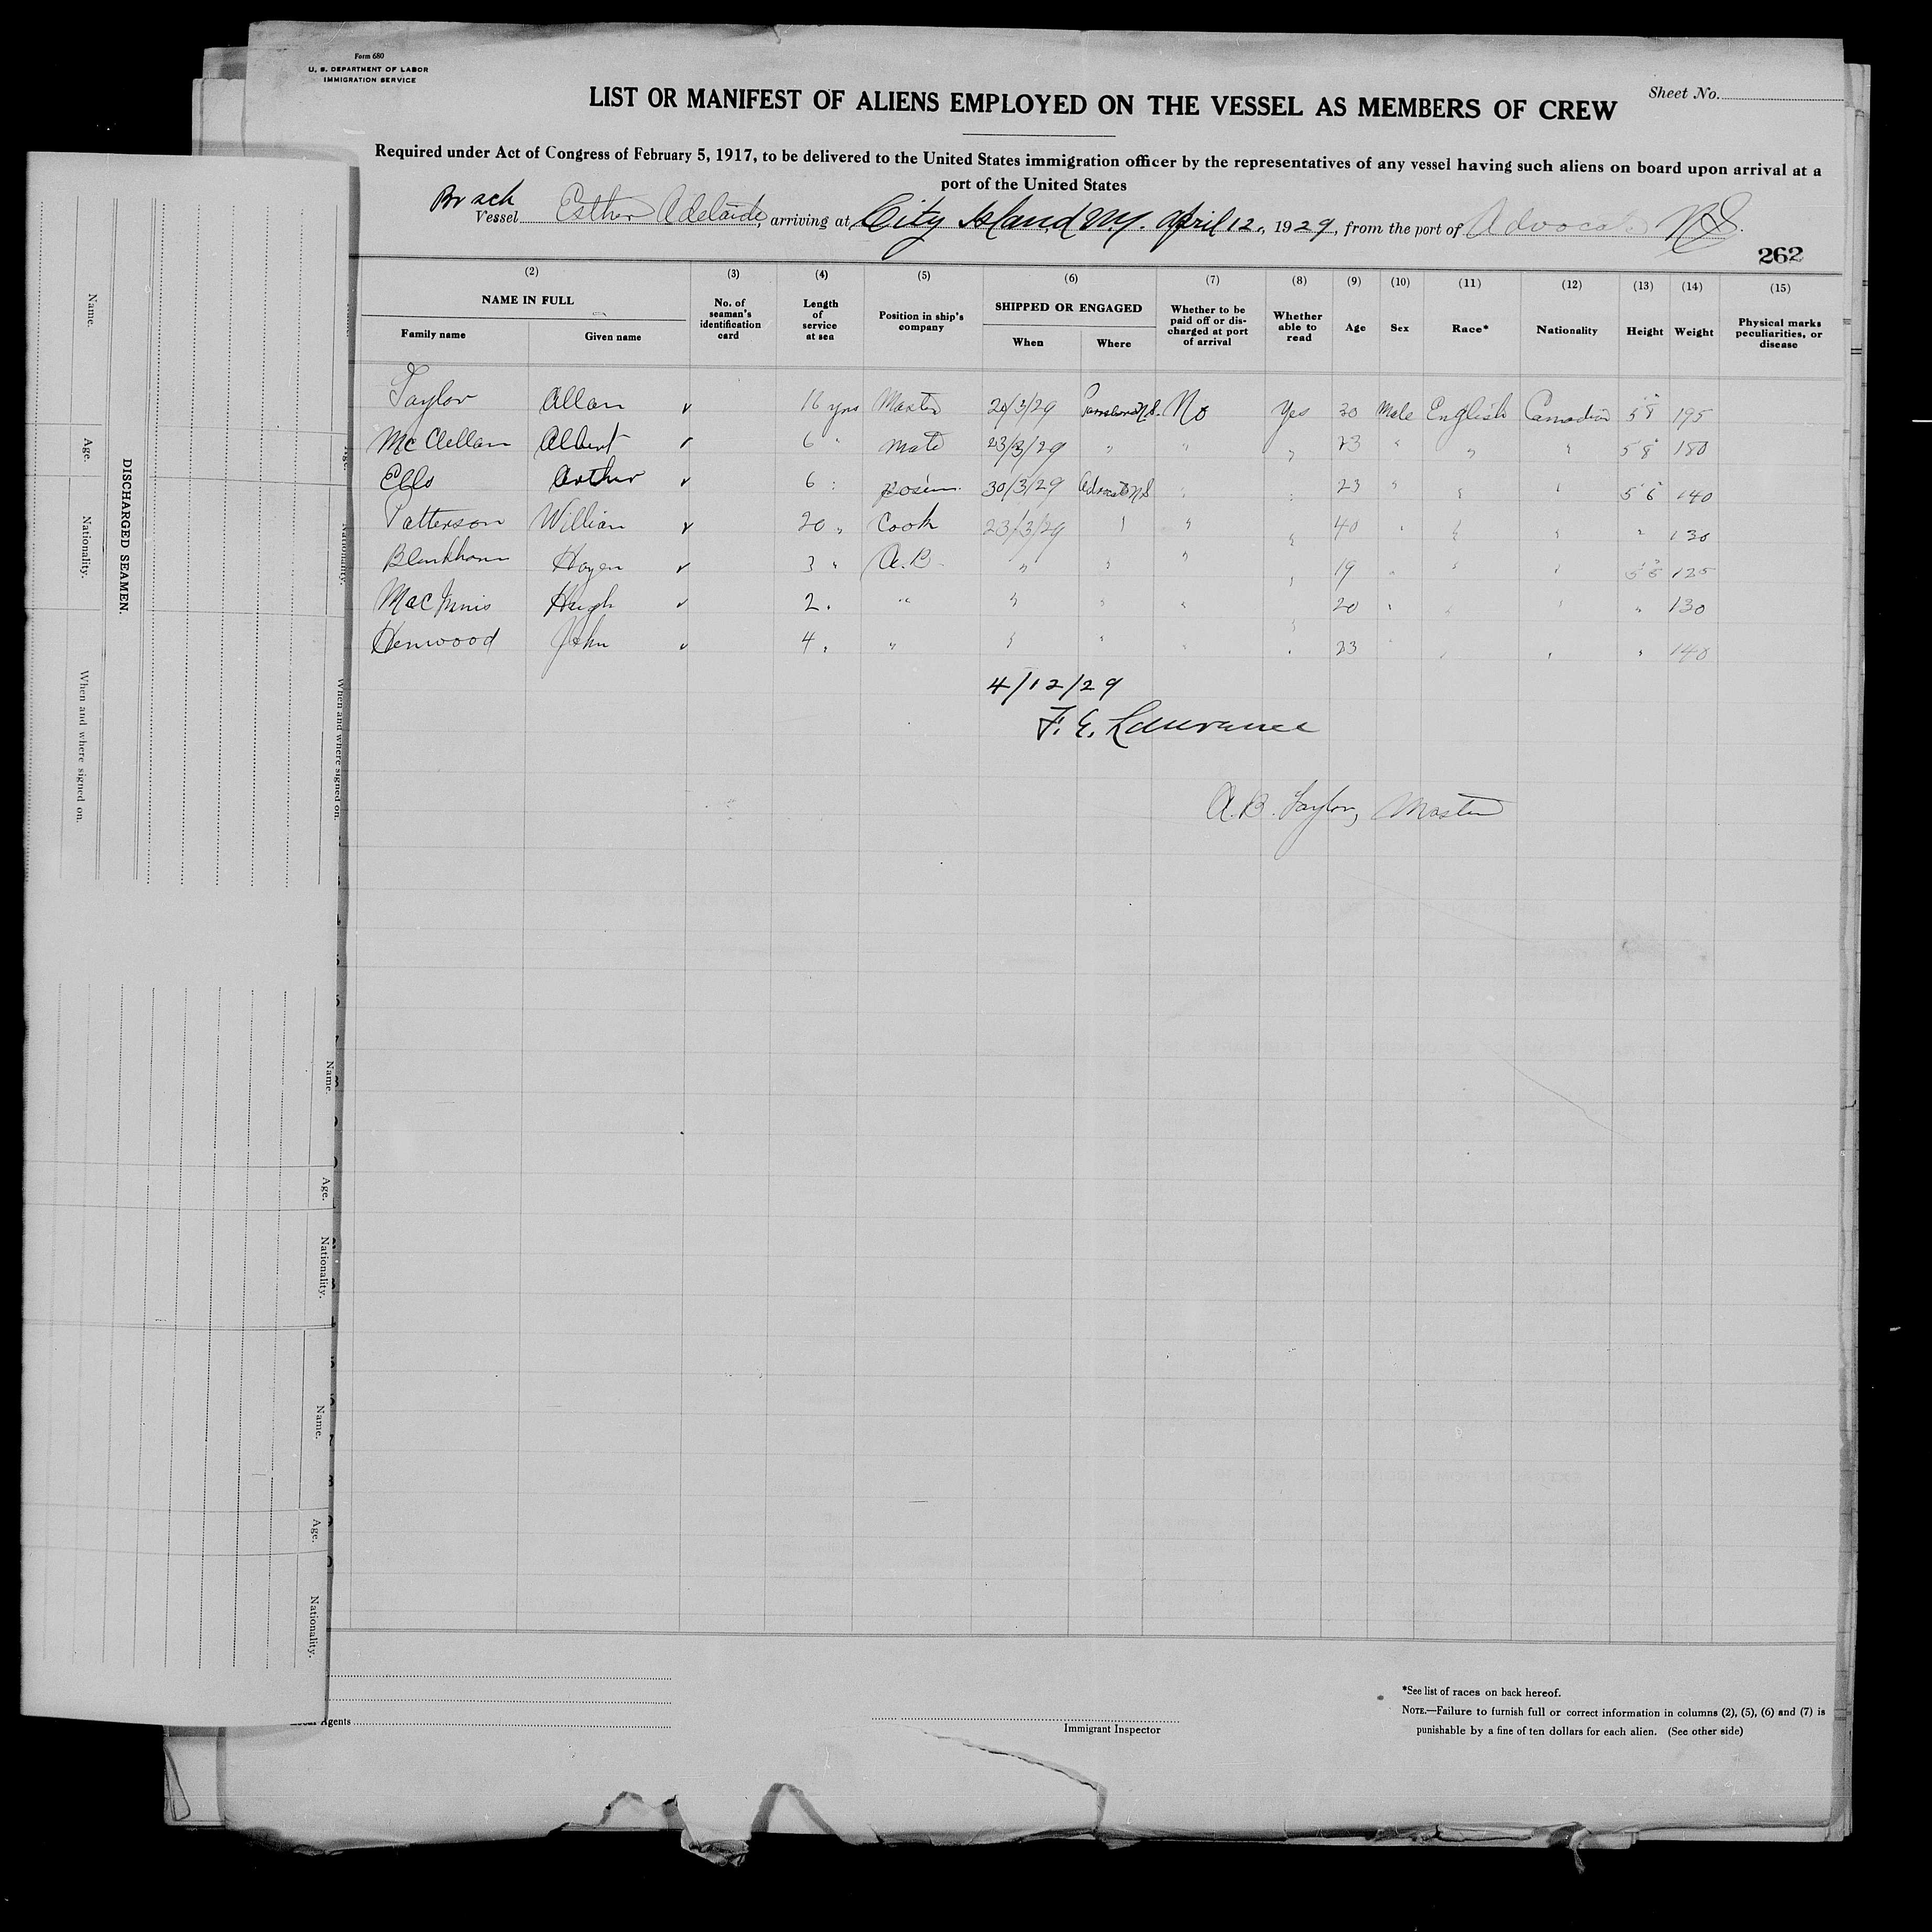 Form 680
U. S. DEPARTMENT OF LABOR
IMMIGRATION SERVICE
Sheet No.
LIST OR MANIFEST OF ALIENS EMPLOYED ON THE VESSEL AS MEMBERS OF CREW
Required under Act of Congress of February 5, 1917, to be delivered to the United States immigration officer by the representatives of any vessel having such aliens on board upon arrival at a
port of the United States
Br sch
Vessel Esther Adelaide, arriving at City Island N.Y. April 12, 1929, from the port of Advocate N.S.
262
(2) (3) (4) (5) (6) (7) (8) (9) (10) (11) (12) (13) (14) (15)
NAME IN FULL
Family name Given name
No. of seaman's identification card
Length of service at sea
Position in ship's company
SHIPPED OR ENGAGED
When Where
Whether to be paid off or dis-charged at port of arrival
Whether able to read
Age
Sex
Race*
Nationality
Height
Weight
Physical marks peculiarities, or disease
Taylor Allan ✓ 16 yrs Master 20/3/29 No Yes 30 Male English Canadian 5'8" 195
McClellan Albert ✓ 6 " Mate 23/3/29 " " " 23 " " " 5'8" 180
Ells Arthur ✓ 6 " Bosun 30/3/29 Advocate N.S. " " 23 " " " 5'6" 140
Patterson William ✓ 20 " Cook 23/3/29 " " " 40 " " " " 130
Blenkhorn ✓ 3 " A.B. " " " " 19 " " " 5'5" 125
MacInnis Hugh ✓ 2 " " " " " " 20 " " " " 130
Henwood John ✓ 4 " " " " " " 23 " " " " 140
4/12/29
F. E. Lawrance
A. B. Taylor, Master
DISCHARGED SEAMEN.
Name.
Age.
Nationality.
When and where signed on.
Age.
Nationality.
When and where signed on.
Name.
Age.
Nationality.
Name.
Age.
Nationality.
Agents
Immigrant Inspector
*See list of races on back hereof.
NOTE.—Failure to furnish full or correct information in columns (2), (5), (6) and (7) is
punishable by a fine of ten dollars for each alien. (See other side)